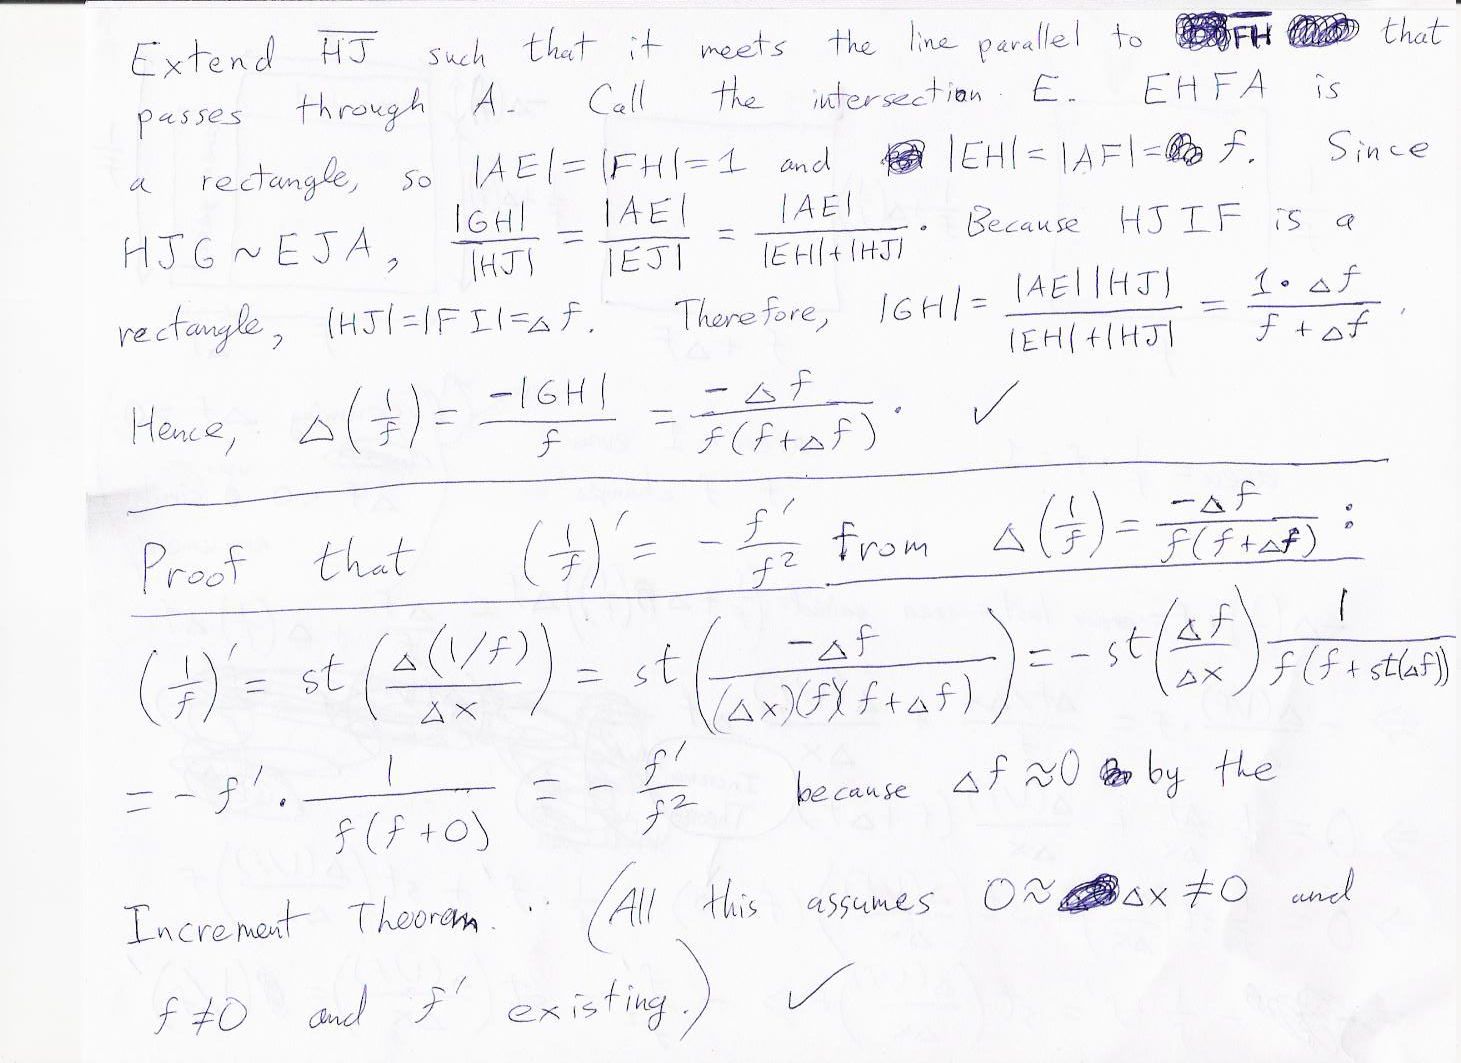 Extend HJ such that it meets the line parallel to FH that
passes through A. Call the intersection E. EHFA is
a rectangle, so |AE|=|FH|=1 and |EH|=|AF|= f. Since
HJG ~ EJA, |GH|/|HJ| = |AE|/|EJ| = |AE|/(|EH|+|HJ|). Because HJIF is a
rectangle, |HJ|=|FI|=△f. Therefore, |GH| = |AE||HJ|/(|EH|+|HJ|) = 1·△f/(f+△f).
Hence, △(1/f) = -|GH|/f = -△f/(f(f+△f)). ✓
Proof that (1/f)' = - f'/f² from △(1/f) = -△f/(f(f+△f)) :
(1/f)' = st(△(1/f)/△x) = st(-△f/((△x)(f)(f+△f))) = -st(△f/△x) 1/(f(f+st(△f)))
= -f' · 1/(f(f+0)) = - f'/f² because △f ≈ 0 by the
Increment Theorem. (All this assumes 0 ≈ △x ≠ 0 and
f ≠ 0 and f' existing.) ✓